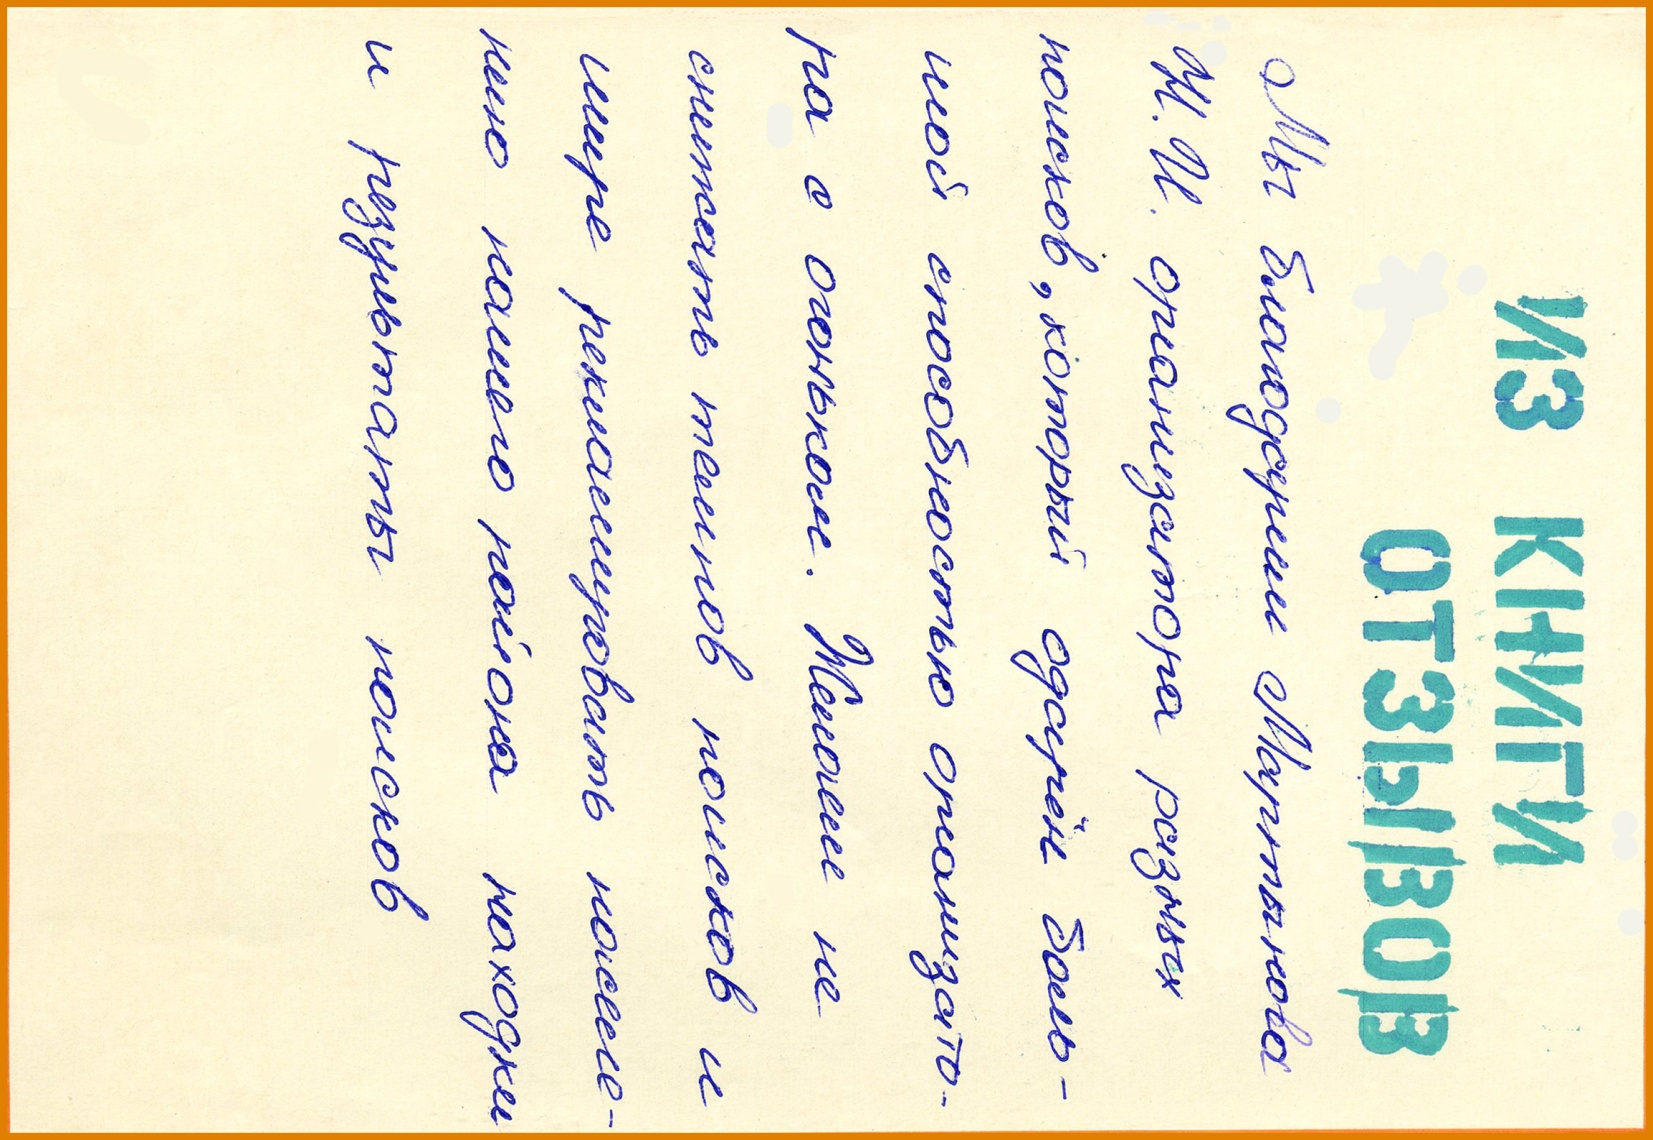 ИЗ КНИГИ
ОТЗЫВОВ
Мы благодарим Мартынова
Н.И. организатора разных
поисков, который одарён боль-
шой способностью организато-
ра с огоньком. Желаем не
снижать темпов поисков и
шире рекламировать населе-
нию нашего района находки
и результаты поисков